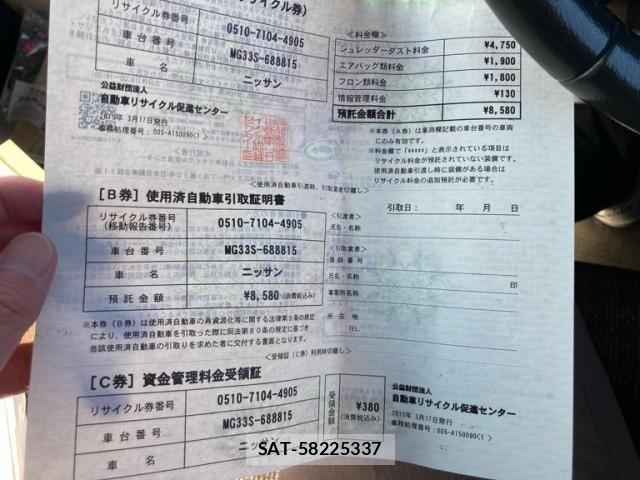 イクル券)
リサイクル券番号 0510-7104-4905
車台番号 MG33S-688815
車　名 ニッサン
<料金欄>
シュレッダーダスト料金 ¥4,750
エアバッグ類料金 ¥1,900
フロン類料金 ¥1,800
情報管理料金 ¥130
預託金額合計 ¥8,580
公益財団法人
自動車リサイクル促進センター
2015年 3月17日発行
事務処理番号:005-A150090(1 >
※本券(A券)は車両欄記載の車台番号の車両
にのみ有効です。
※料金欄で「*****」と表示されている項目は
リサイクル料金が預託されていない装備です。
使用済自動車引渡し時に装備がある場合は
リサイクル料金の追加預託が必要です。
<使用済自動車引渡時、引取業者切離し>
[B券] 使用済自動車引取証明書
引取日: 年 月 日
リサイクル券番号
(移動報告番号) 0510-7104-4905
車台番号 MG33S-688815
車　名 ニッサン
預託金額 ¥8,580 (消費税込み)
<引渡者>
氏名・名称
<引取業者>
登録番号
氏名・名称
印
事業所名称
所在地
TEL.
※本券(B券)は使用済自動車の再資源化等に関する法律第9条の規定
により、使用済自動車を引取った際に同法第80条の規定に基づき
当該使用済自動車の引取りを求めた者に交付する書面となります。
<受領証(C券)利用時切離し>
[C券] 資金管理料金受領証
リサイクル券番号 0510-7104-4905
車台番号 MG33S-688815
車　名 ニッサン
受領金額 ¥380
(消費税込み)
公益財団法人
自動車リサイクル促進センター
2015年 3月17日発行
事務処理番号:005-A150090(1 >
SAT-58225337